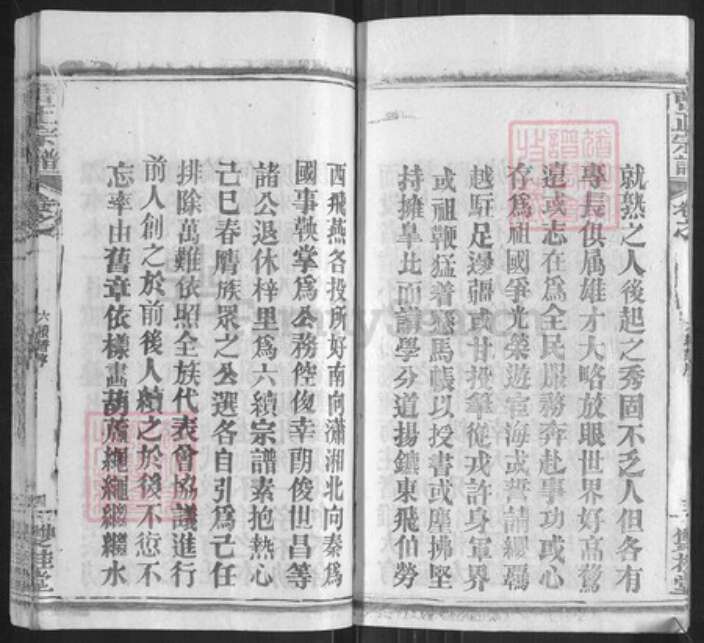 就熟之人後起之秀固不乏人但各有
專長俱属雄才大略放眼世界好高騖
遠或志在爲全民服務奔赴事功或心
存爲祖國爭光榮遊宦海或誓請纓羈
越駐足邊疆或甘投筆從戎許身軍界
或祖鞭猛着馬帳以授書或塵拂堅
持擁皐比而講學分道揚鑣東飛伯勞
西飛燕各投所好南向瀟湘北向秦爲
國事鞅掌爲公務倥傯幸朗俊世昌等
諸公退休梓里爲六續宗譜素抱熱心
己巳春膺族眾之公選各自引爲己任
排除萬難依照全族代表會協議進行
前人創之於前後人續之於後不愆不
忘率由舊章依樣畫葫蘆繩繩繼繼水
宗譜
六續譜序
雙桂堂